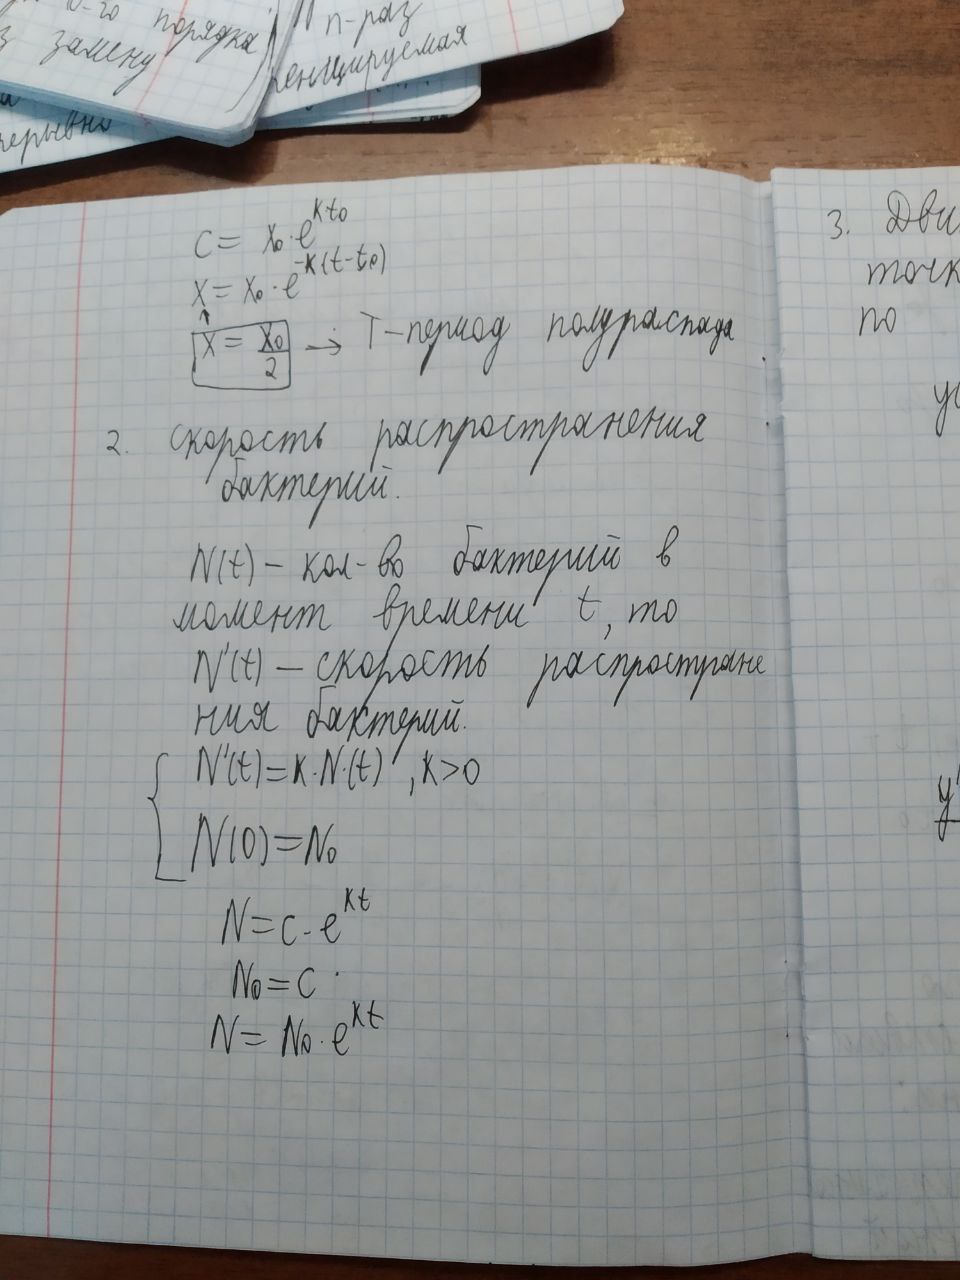 0-го порядка
з замену
n-раз
ренцируемая
ерывно
C = x₀·e^kt₀
x = x₀·e^-k(t-t₀)
x = x₀/2 → T-период полураспада
2. скорость распространения
бактерий.
N(t) – кол-во бактерий в
момент времени t, то
N'(t) – скорость распростране
ния бактерий.
{ N'(t)=k·N·(t) , k>0
N(0)=N₀
N=c-e^kt
N₀=c
N= N₀·e^kt
3. Дви
точк
по
ус
y'